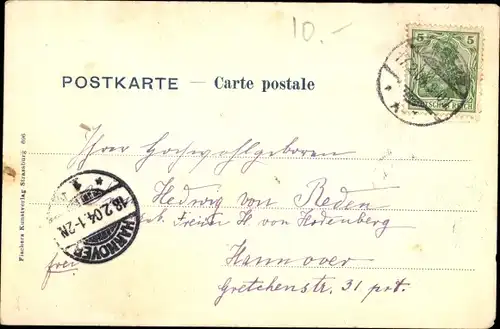 10.-
5
DEUTSCHES REICH
POSTKARTE — Carte postale
Ihrer Hochwohlgeboren
Hedwig von Reden
geb. Freiin H. von Hodenberg
Hannover
Gretchenstr. 31 prt.
frei
HANNOVER
18.2.04.1-2N.
1
Fischers Kunstverlag Strassburg 696